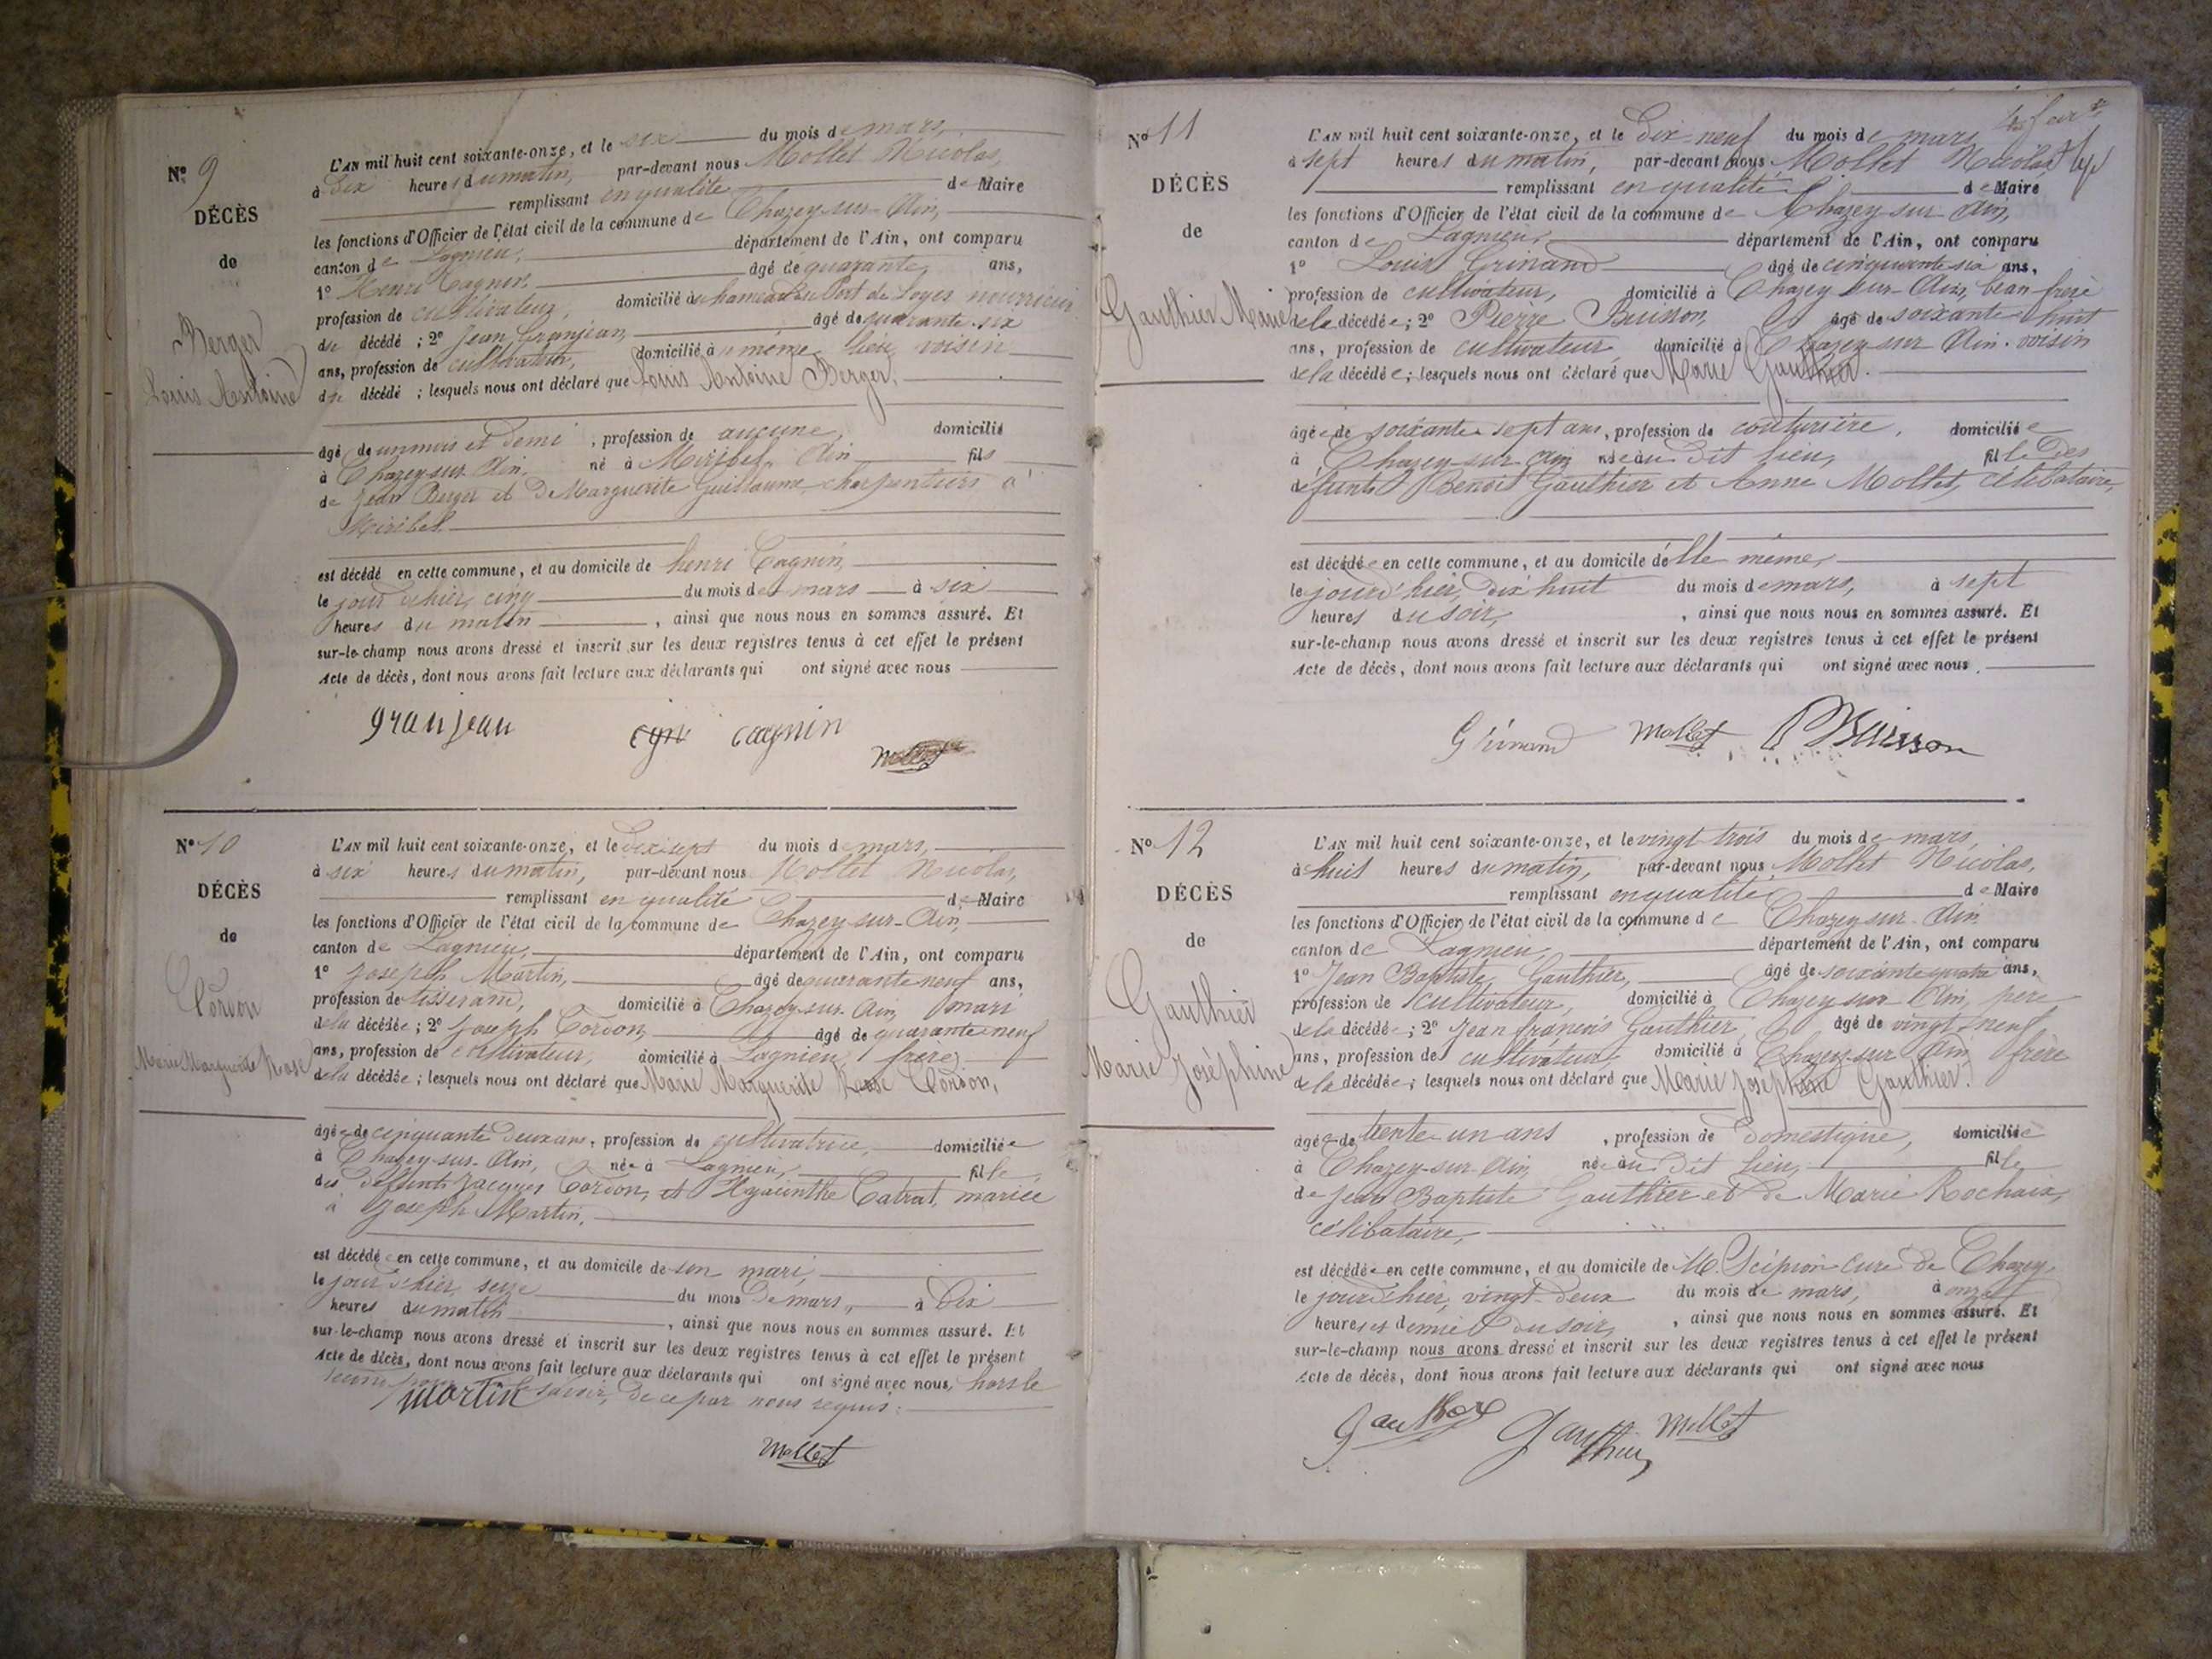 Nº 9
DÉCÈS
de
Berger
Louis Antoine
L'AN mil huit cent soixante-onze, et le six du mois de mars,
à dix heures du matin, par-devant nous Mollet Nicolas,
remplissant en qualité de Maire
les fonctions d'Officier de l'état civil de la commune de Chazey-sur-Ain,
canton de Lagnieu, département de l'Ain, ont comparu
1º Henri Cagnin, âgé de quarante ans,
profession de cultivateur, domicilié au hameau du Port de Loyes nourricier
du décédé ; 2º Jean Granjean, âgé de quarante-six
ans, profession de cultivateur, domicilié à même lieu voisin
du décédé ; lesquels nous ont déclaré que Louis Antoine Berger,
âgé de un mois et demi , profession de aucune, domicilié
à Chazey-sur-Ain, né à Miribel, Ain fils
de Jean Berger et de Marguerite Guillaume charpentiers à
Miribel
est décédé en cette commune, et au domicile de henri Cagnin,
le jour d'hier, cinq du mois de mars à six
heures du matin , ainsi que nous nous en sommes assuré. Et
sur-le-champ nous avons dressé et inscrit sur les deux registres tenus à cet effet le présent
Acte de décès, dont nous avons fait lecture aux déclarants qui ont signé avec nous
granjean cagnin
Mollet
Nº 10
DÉCÈS
de
Cordon
Marie Marguerite Rose
L'AN mil huit cent soixante-onze, et le dix sept du mois de mars,
à six heures du matin, par-devant nous Mollet Nicolas,
remplissant en qualité de Maire
les fonctions d'Officier de l'état civil de la commune de Chazey-sur-Ain,
canton de Lagnieu, département de l'Ain, ont comparu
1º Joseph Martin, âgé de quarante neuf ans,
profession de tisserand, domicilié à Chazey-sur-Ain, mari
de la décédée ; 2º Joseph Cordon, âgé de quarante-neuf
ans, profession de cultivateur, domicilié à Lagnieu, frère
de la décédée ; lesquels nous ont déclaré que Marie Marguerite Rose Cordon,
âgée de cinquante deux ans, profession de cultivatrice, domiciliée
à Chazey-sur-Ain, née à Lagnieu, fille
des défunts Jacques Cordon, et Hyacinthe Catrat, mariée
à Joseph Martin,
est décédée en cette commune, et au domicile de son mari,
le jour d'hier, seize du mois de mars, à dix
heures du matin , ainsi que nous nous en sommes assuré. Et
sur-le-champ nous avons dressé et inscrit sur les deux registres tenus à cet effet le présent
Acte de décès, dont nous avons fait lecture aux déclarants qui ont signé avec nous, hors le
savoir, de ce par nous requis.
Martin
Mollet
Nº 11
DÉCÈS
de
Gauthier Marie
L'AN mil huit cent soixante-onze, et le dix-neuf du mois de mars
à sept heures du matin, par-devant nous Mollet Nicolas,
remplissant en qualité de Maire
les fonctions d'Officier de l'état civil de la commune de Chazey-sur-Ain,
canton de Lagnieu, département de l'Ain, ont comparu
1º Louis Grinand âgé de cinquante-six ans,
profession de cultivateur, domicilié à Chazey-sur-Ain, beau-frère
de la décédée ; 2º Pierre Buisson, âgé de soixante huit
ans, profession de cultivateur, domicilié à Chazey-sur-Ain, voisin
de la décédée ; lesquels nous ont déclaré que Marie Gauthier.
âgée de soixante sept ans, profession de couturière, domiciliée
à Chazey-sur-Ain née au dit lieu, fille des
défunts Benoit Gauthier et Anne Mollet, célibataire,
est décédée en cette commune, et au domicile d'elle même,
le jour d'hier, dix huit du mois de mars, à sept
heures du soir, , ainsi que nous nous en sommes assuré. Et
sur-le-champ nous avons dressé et inscrit sur les deux registres tenus à cet effet le présent
Acte de décès, dont nous avons fait lecture aux déclarants qui ont signé avec nous.
Grinand Mollet P Buisson
Nº 12
DÉCÈS
de
Gauthier
Marie Joséphine
L'AN mil huit cent soixante-onze, et le vingt trois du mois de mars,
à huit heures du matin, par-devant nous Mollet Nicolas,
remplissant en qualité de Maire
les fonctions d'Officier de l'état civil de la commune de Chazey-sur-Ain
canton de Lagnieu, département de l'Ain, ont comparu
1º Jean Baptiste Gauthier, âgé de soixante quatre ans,
profession de cultivateur, domicilié à Chazey-sur-Ain, père
de la décédée ; 2º Jean françois Gauthier, âgé de vingt neuf
ans, profession de cultivateur, domicilié à Chazey-sur-Ain, frère
de la décédée ; lesquels nous ont déclaré que Marie Joséphine Gauthier.
âgée de trente-un ans , profession de domestique, domiciliée
à Chazey-sur-Ain, née au dit lieu, fille
de Jean Baptiste Gauthier et de Marie Rochaix,
célibataire,
est décédée en cette commune, et au domicile de M. Scipion Curé de Chazey,
le jour d'hier, vingt-deux du mois de mars, à onze
heures et demie du soir, , ainsi que nous nous en sommes assuré. Et
sur-le-champ nous avons dressé et inscrit sur les deux registres tenus à cet effet le présent
Acte de décès, dont nous avons fait lecture aux déclarants qui ont signé avec nous
Gauthier Gauthier Mollet